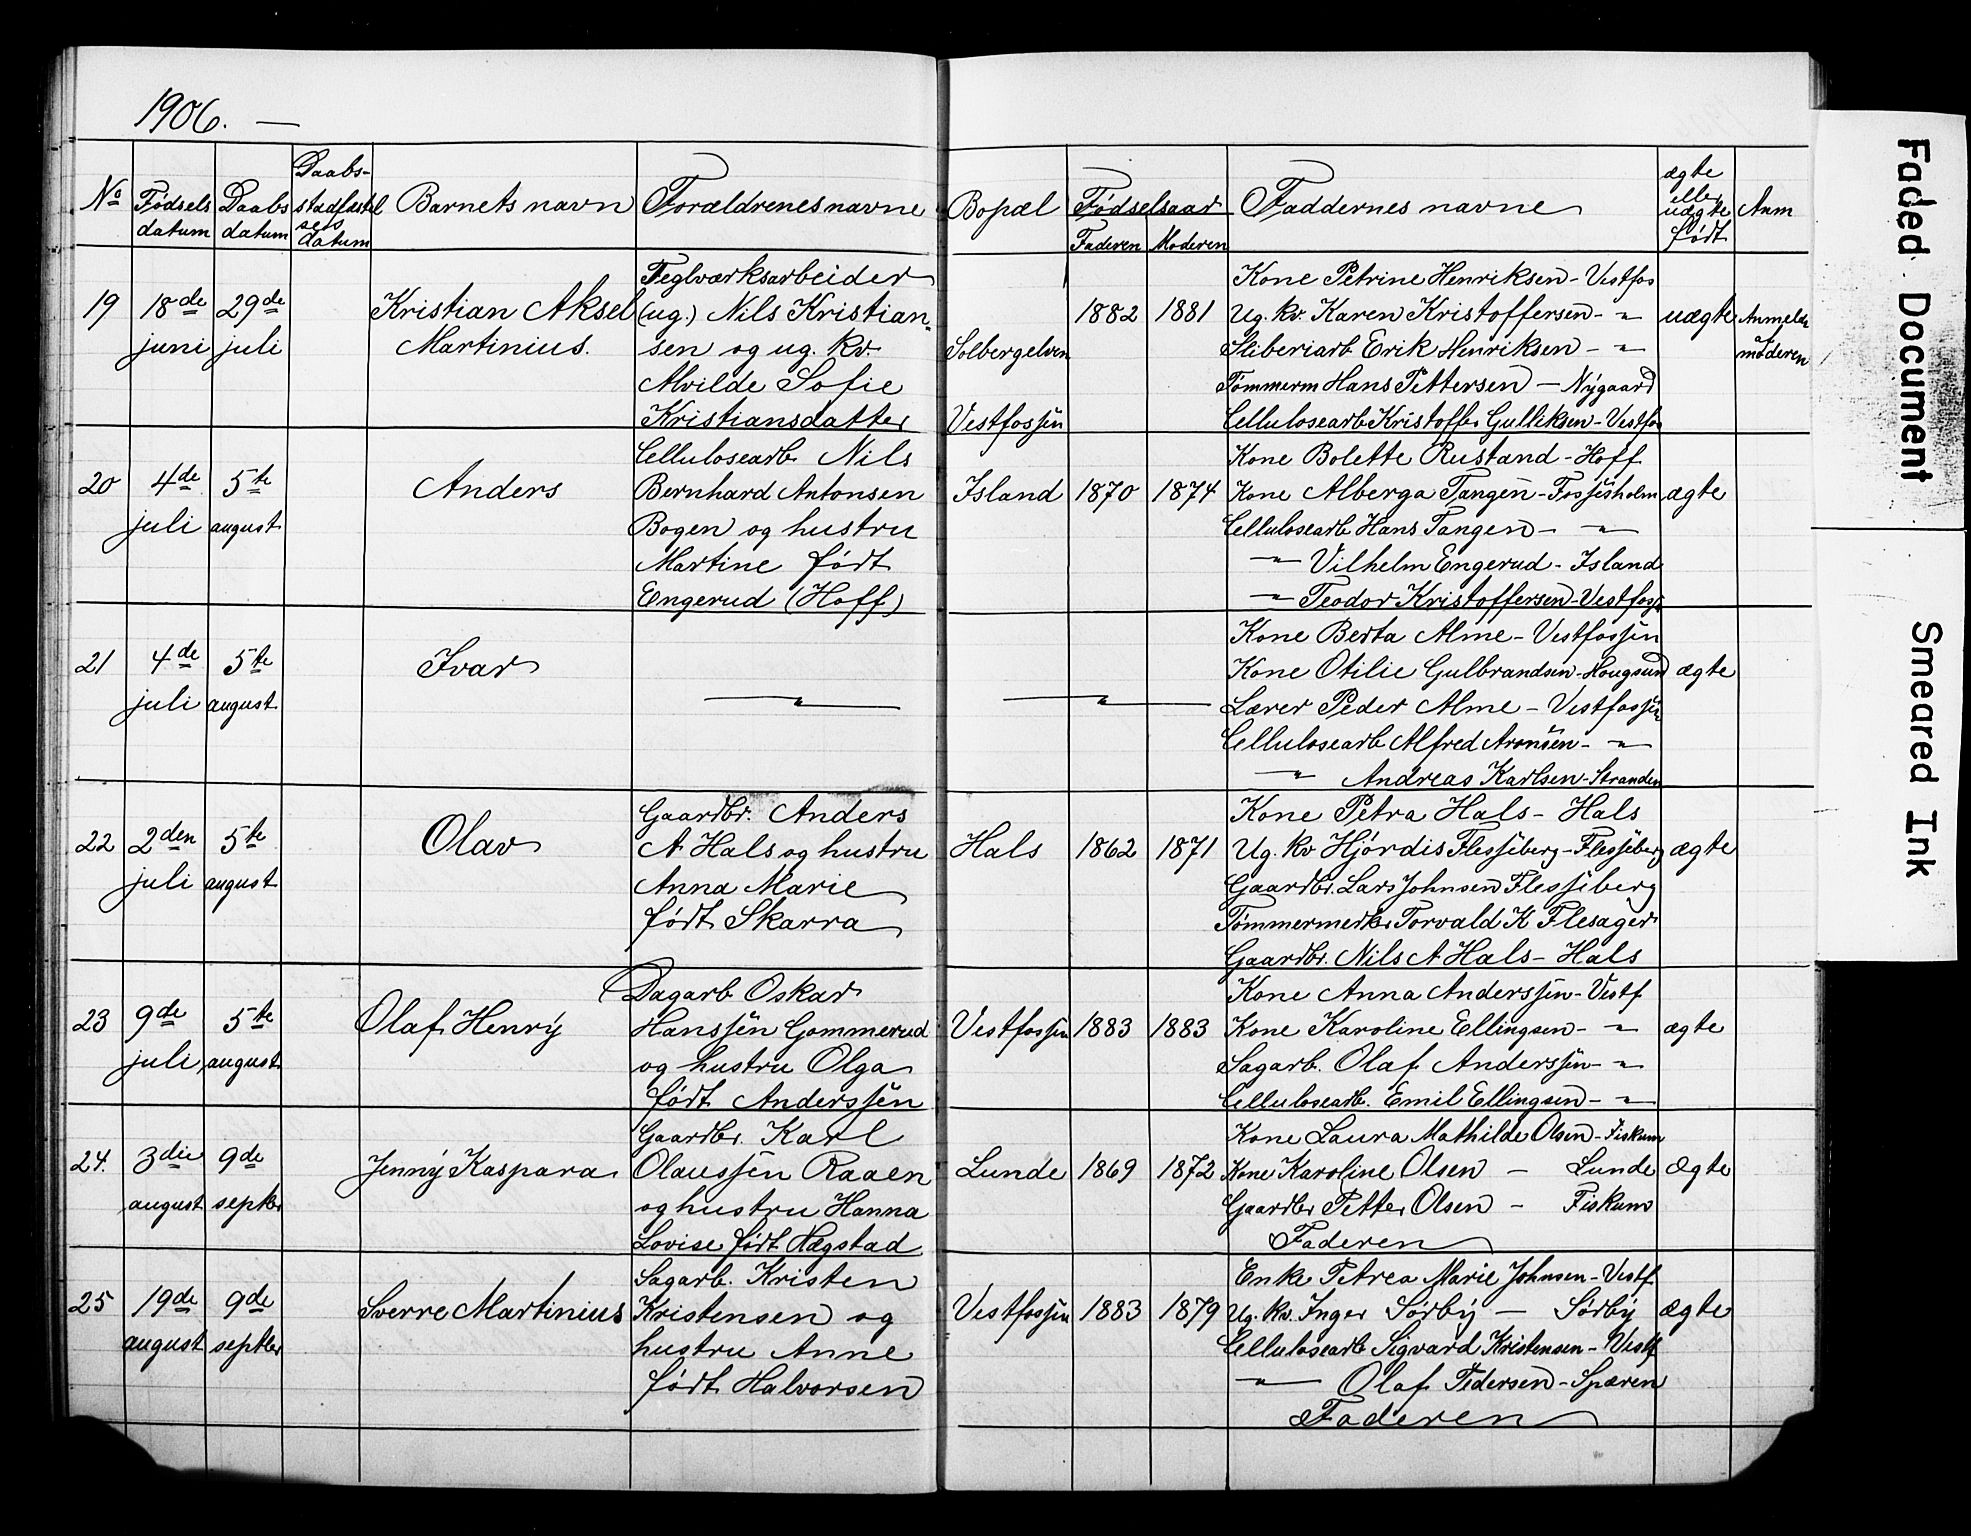 1906. —
No | Fødsels datum | Daabs datum | Daabs-stadfæstelses datum | Barnets navn | Forældrenes navne | Bopæl | Fødselsaar Faderen | Moderen | Faddernes navne | ægte eller uægte født | Anm
19 18de juni 29de juli
Kristian Aksel
Martinius.
Teglværksarbeider
(ug.) Nils Kristian-
sen og ug. kv.
Alvilde Sofie
Kristiansdatter
Solbergelven
Vestfossen
1882 1881
Kone Petrine Henriksen - Vestfos
Ug. kv. Karen Kristoffersen - "
Sliberiarb Erik Henriksen - "
Tømmerm Hans Pettersen - Nygaard
Cellulosearb Kristoffer Gulliksen - Vestfos
uægte
Anmeldt
moderen
20 4de juli 5te august
Anders
Cellulosearb Nils
Bernhard Antonsen
Bogen og hustru
Martine født
Engerud (Hoff)
Island 1870 1874
Kone Bolette Rustand - Hoff
Kone Alberga Tangen - Fossesholm
Cellulosearb Hans Tangen - "
" Vilhelm Engerud - Island
" Teodor Kristoffersen - Vestfoss
ægte
21 4de juli 5te august
Ivar
" "
Kone Berta Alme - Vestfossen
Kone Otilie Gulbrandsen - Hougsund
Lærer Peder Alme - Vestfossen
Cellulosearb Alfred Aronsen - "
" Andreas Karlsen - Stranden
ægte
22 2den juli 5te august
Olav
Gaardbr. Anders
A Hals og hustru
Anna Marie
født Skarra
Hals 1862 1871
Kone Petra Hals - Hals
Ug. kv Hjørdis Flesseberg - Flesseberg
Gaardbr. Lars Johnsen Flesseberg
Tømmermerker Torvald K Flesager
Gaardbr. Nils A Hals - Hals
ægte
23 9de juli 5te august
Olaf Henry
Dagarb Oskar
Hanssen Gommerud
og hustru Olga
født Anderssen
Vestfossen 1883 1883
Kone Anna Anderssen - Vestf
Kone Karoline Ellingsen - "
Sagarb. Olaf Anderssen - "
Cellulosearb. Emil Ellingsen - "
ægte
24. 3die august 9de septbr
Jenny Kaspara
Gaardbr. Karl
Olaussen Raaen
og hustru Hanna
Lovise født Hægstad
Lunde 1869 1872
Kone Laura Mathilde Olsen - Fiskum
Kone Karoline Olsen - Lunde
Gaardbr Petter Olsen - Fiskum
Faderen
Ægte
25 19de august 9de septbr
Sverre Martinius
Sagarb. Kristen
Kristensen og
hustru Anne
født Halvorsen
Vestfossen 1883 1879
Enke Petrea Marie Johnsen - Vestf
Ug. kv. Inger Sørby - Sørby
Cellulosearb Sigvard Kristensen - Vestf
" Olaf Pedersen - Spæren
Faderen
ægte
Faded Document
Smeared Ink